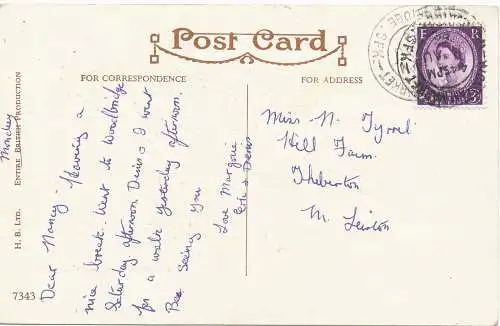 Post Card
FOR CORRESPONDENCE
FOR ADDRESS
Monday
Dear Nancy, Having a
nice break. Went to Woodbridge
Saturday afternoon Dennis & I went
for a walk yesterday afternoon.
Bee seeing you
Love Margorie
Eric & Dennis
Miss N. Tyrrel
Hill Farm.
Theberton
Nr. Leiston
H. B. LTD. ENTIRE BRITISH PRODUCTION
7343
E R
3D